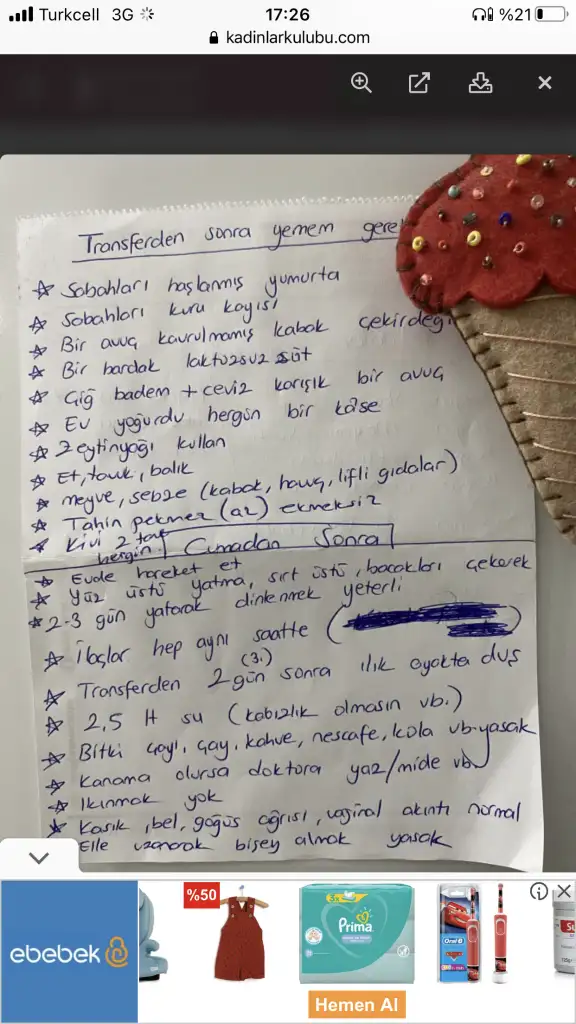 Turkcell 3G 17:26 %21
kadinlarkulubu.com
Transferden sonra yemem gere
☆ Sabahları haşlanmış yumurta
☆ Sabahları kuru kayısı
☆ Bir avuç kavrulmamış kabak çekirdeği
☆ Bir bardak laktozsuz süt
☆ Çiğ badem + ceviz karışık bir avuç
☆ Ev yoğurdu hergün bir kase
☆ Zeytinyağı kullan
☆ Et, tavuk, balık
☆ meyve, sebze (kabak, havuç, lifli gıdalar)
☆ Tahin pekmez (az) ekmeksiz
☆ Kivi 2 tane
hergün
Cumadan Sonra
☆ Evde hareket et
☆ Yüz üstü yatma, sırt üstü, bacakları çekerek
☆ 2-3 gün yatarak dinlenmek yeterli
☆ İlaçlar hep aynı saatte ( )
☆ Transferden 2 (3.) gün sonra ılık ayakta duş
☆ 2,5 lt su (kabızlık olmasın vb.)
☆ Bitki çayı, çay, kahve, nescafe, kola vb. yasak
☆ Kanama olursa doktora yaz/mide vb
☆ Ikınmak yok
☆ Kasık, bel, göğüs ağrısı, vaginal akıntı normal
Elle uzanarak bişey almak yasak
ebebek
%50
Prima
Oral-B
Hemen Al